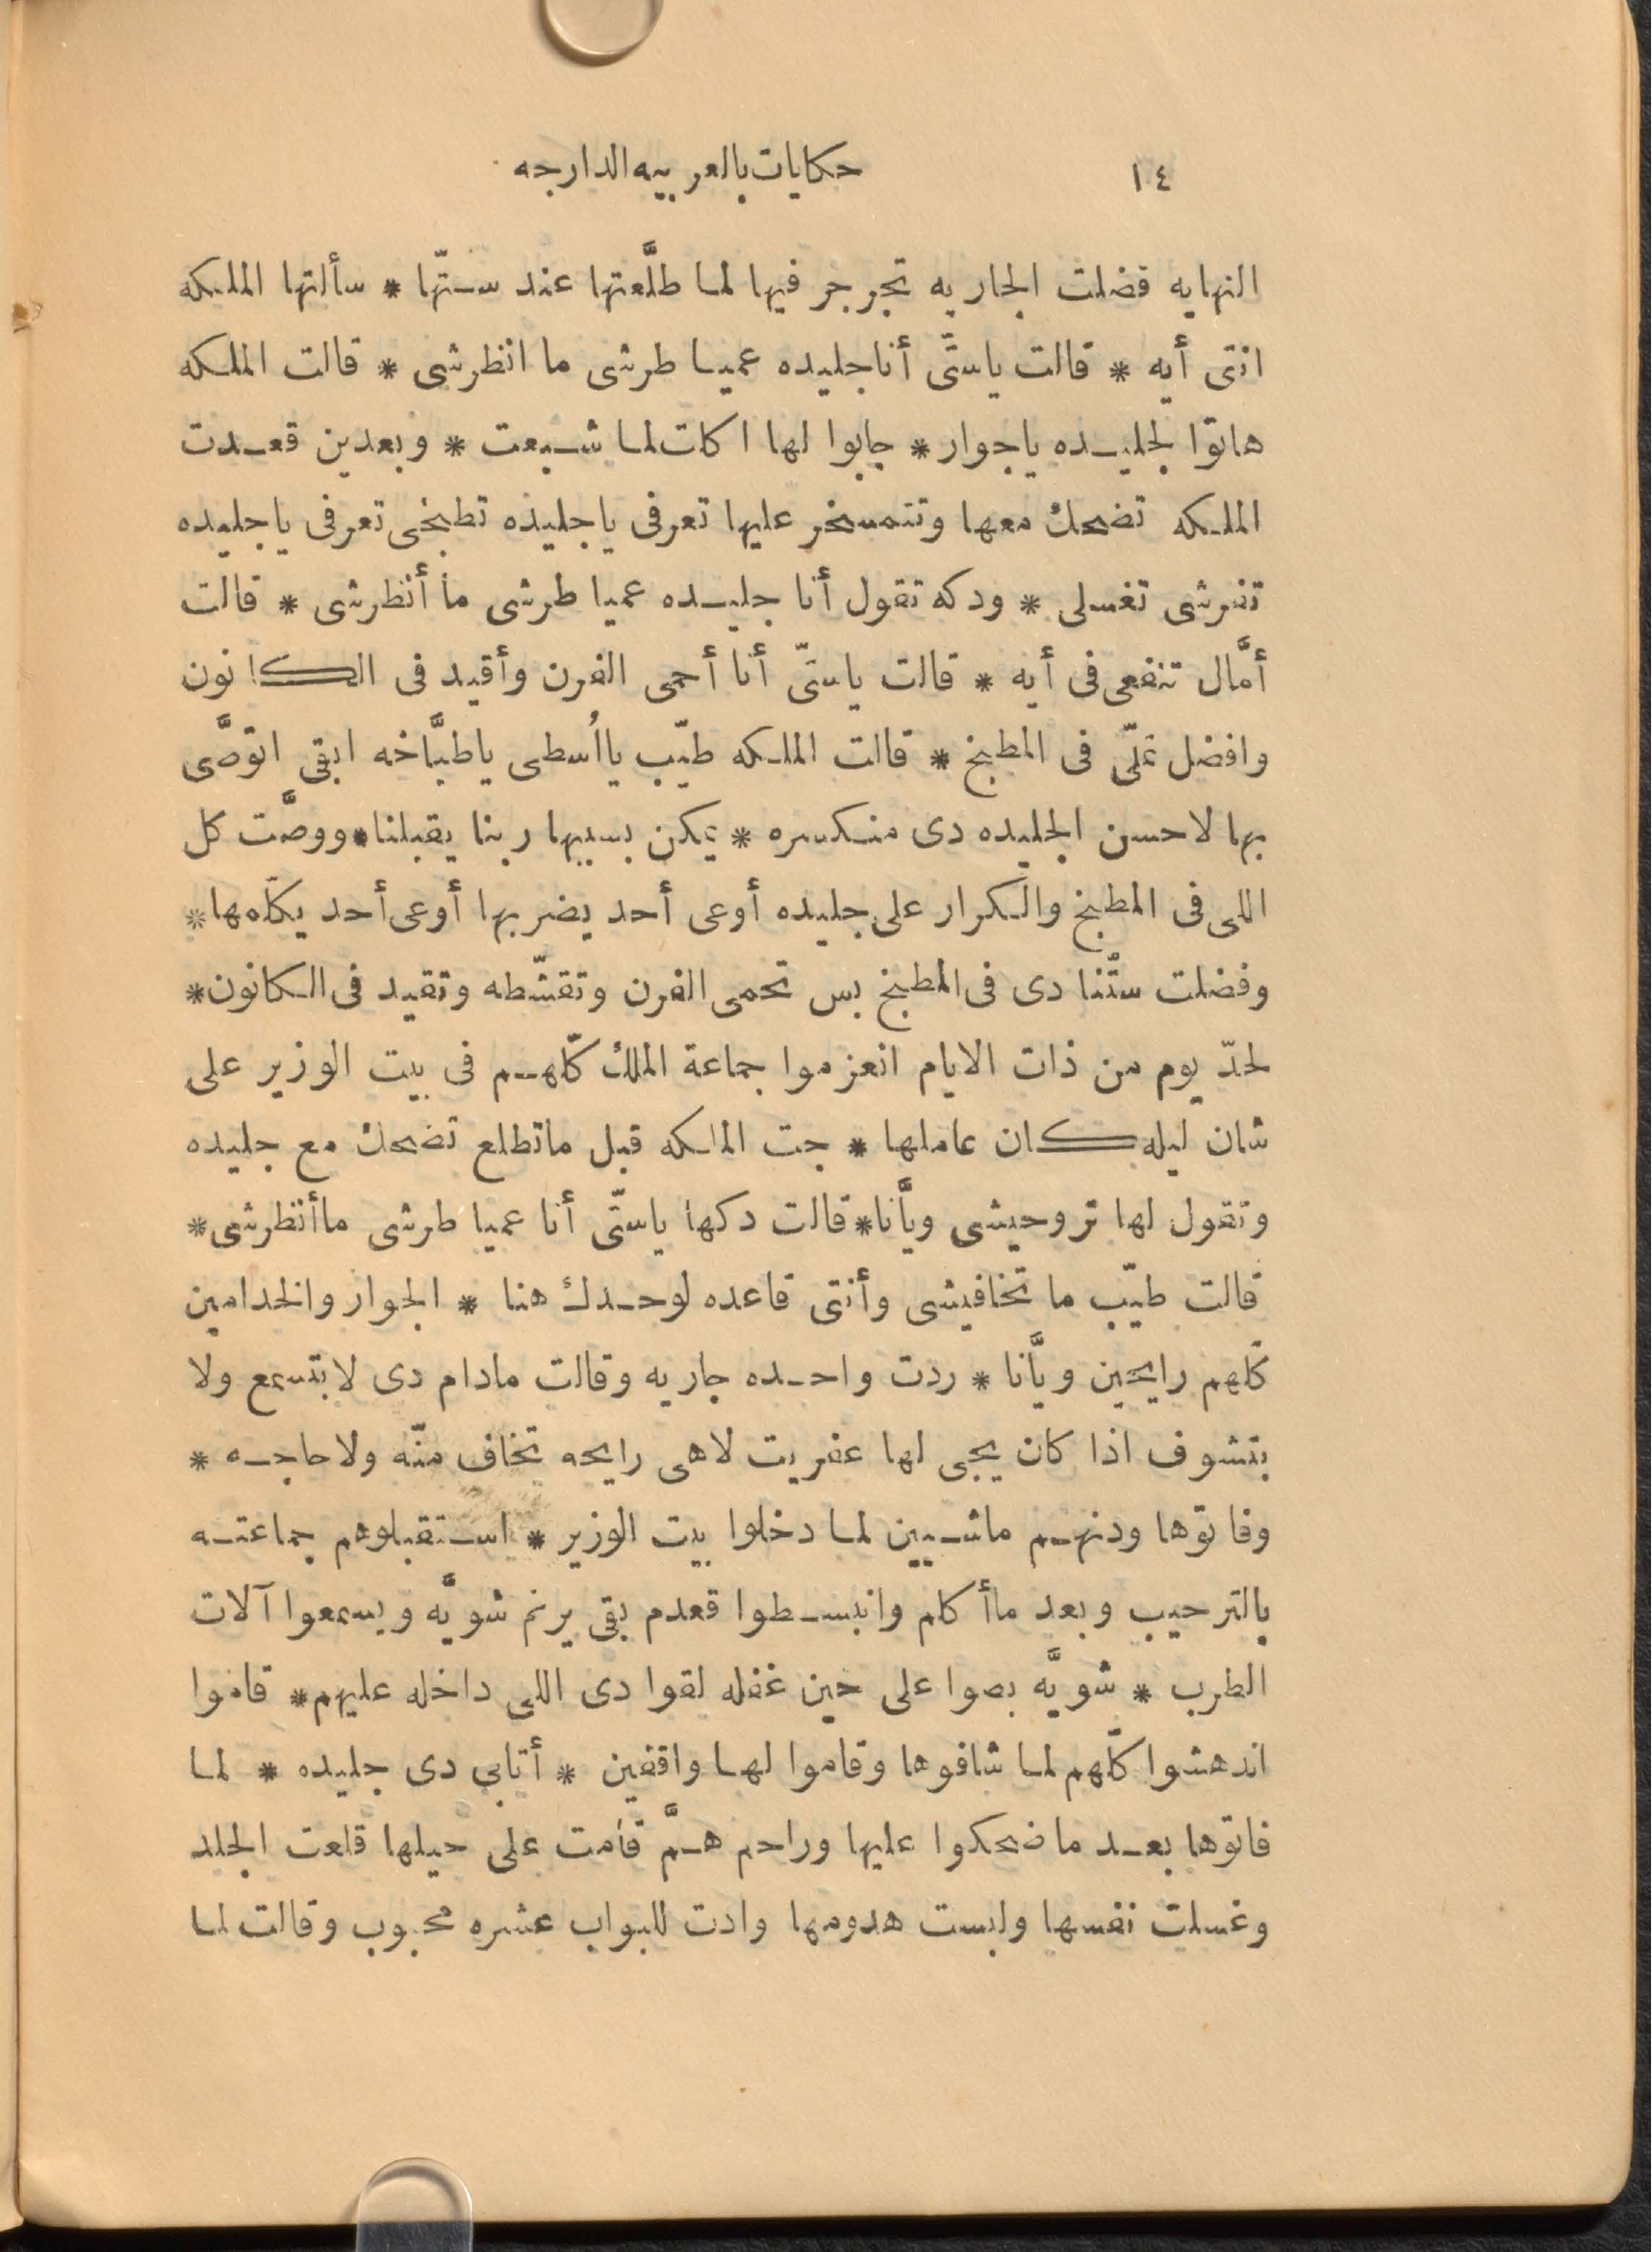 ١٤
حكايات بالعربيه الدارجه
النهايه فضلت الجاريه تجرجر فيها لما طلَّعتها عند ستّها * سألتها الملكه
انتى أيه * قالت ياستّى أنا جليده عميا طرشى ما انظرشى * قالت الملكه
هاتوا لجليده ياجوار * جابوا لها اكات لما شبعت * وبعدين قعدت
الملكه تضحك معها وتتمسخر عليها تعرفى ياجليده تطبخى تعرفى ياجليده
تفرشى تغسلى * ودكه تقول أنا جليده عميا طرشى ما أنظرشى * قالت
أمَّال تنفعى فى أيه * قالت ياستّى أنا أحمى الفرن وأقيد فى الكانون
وافضل تملّى فى المطبخ * قالت الملكه طيّب يا اُسطى ياطبَّاخه ابقى اتوصَّى
بها لاحسن الجليده دى منكسره * يمكن بسببها ربنا يقبلنا * ووصَّت كل
اللى فى المطبخ والكرار على جليده أوعى أحد يضربها أوعى أحد يكلّمها *
وفضلت ستّنا دى فى المطبخ بس تحمى الفرن وتقشّطه وتقيد فى الكانون *
لحدّ يوم من ذات الايام انعزموا جماعة الملك كلّهم فى بيت الوزير على
شان ليله كان عاملها * جت الملكه قبل ماتطلع تضحك مع جليده
وتقول لها تروحيشى ويَّانا * قالت دكها ياستّى أنا عميا طرشى ما أنظرشى *
قالت طيّب ما تخافيشى وأنتى قاعده لوحدك هنا * الجوار والخدامين
كلّهم رايحين ويَّانا * ردت واحده جاريه وقالت مادام دى لابتسمع ولا
بتشوف اذا كان يجى لها عفريت لاهى رايحه تخاف منّه ولا حاجه *
وفاتوها ودنهم ماشيين لما دخلوا بيت الوزير * استقبلوهم جماعته
بالترحيب وبعد ما أكلم وانبسطوا قعدم بقى يرنم شويَّه ويسمعوا آلات
الطرب * شويَّه بصوا على حين غفله لقوا دى اللى داخله عليهم * قاموا
اندهشوا كلّهم لما شافوها وقاموا لها واقفين * أتابى دى جليده * لما
فاتوها بعد ماضحكوا عليها وراحم همَّ قامت على حيلها قلعت الجلد
وغسلت نفسها ولبست هدومها وادت للبواب عشره محبوب وقالت لما